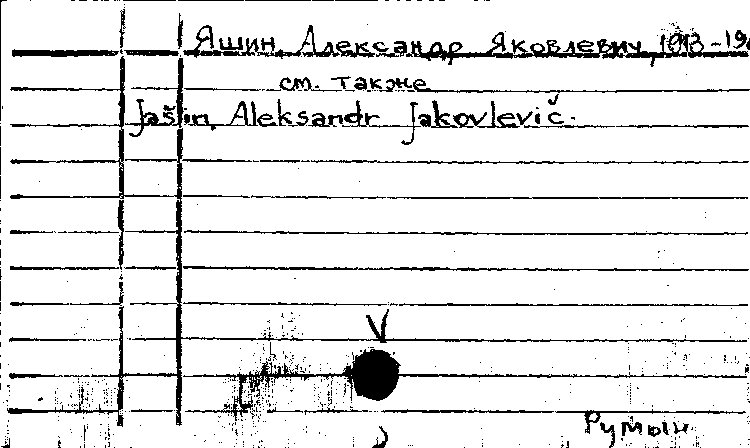 Яшин, Александр Яковлевич, 1913-19
см. также
Jašin, Aleksandr Jakovlevič.
V
Румын